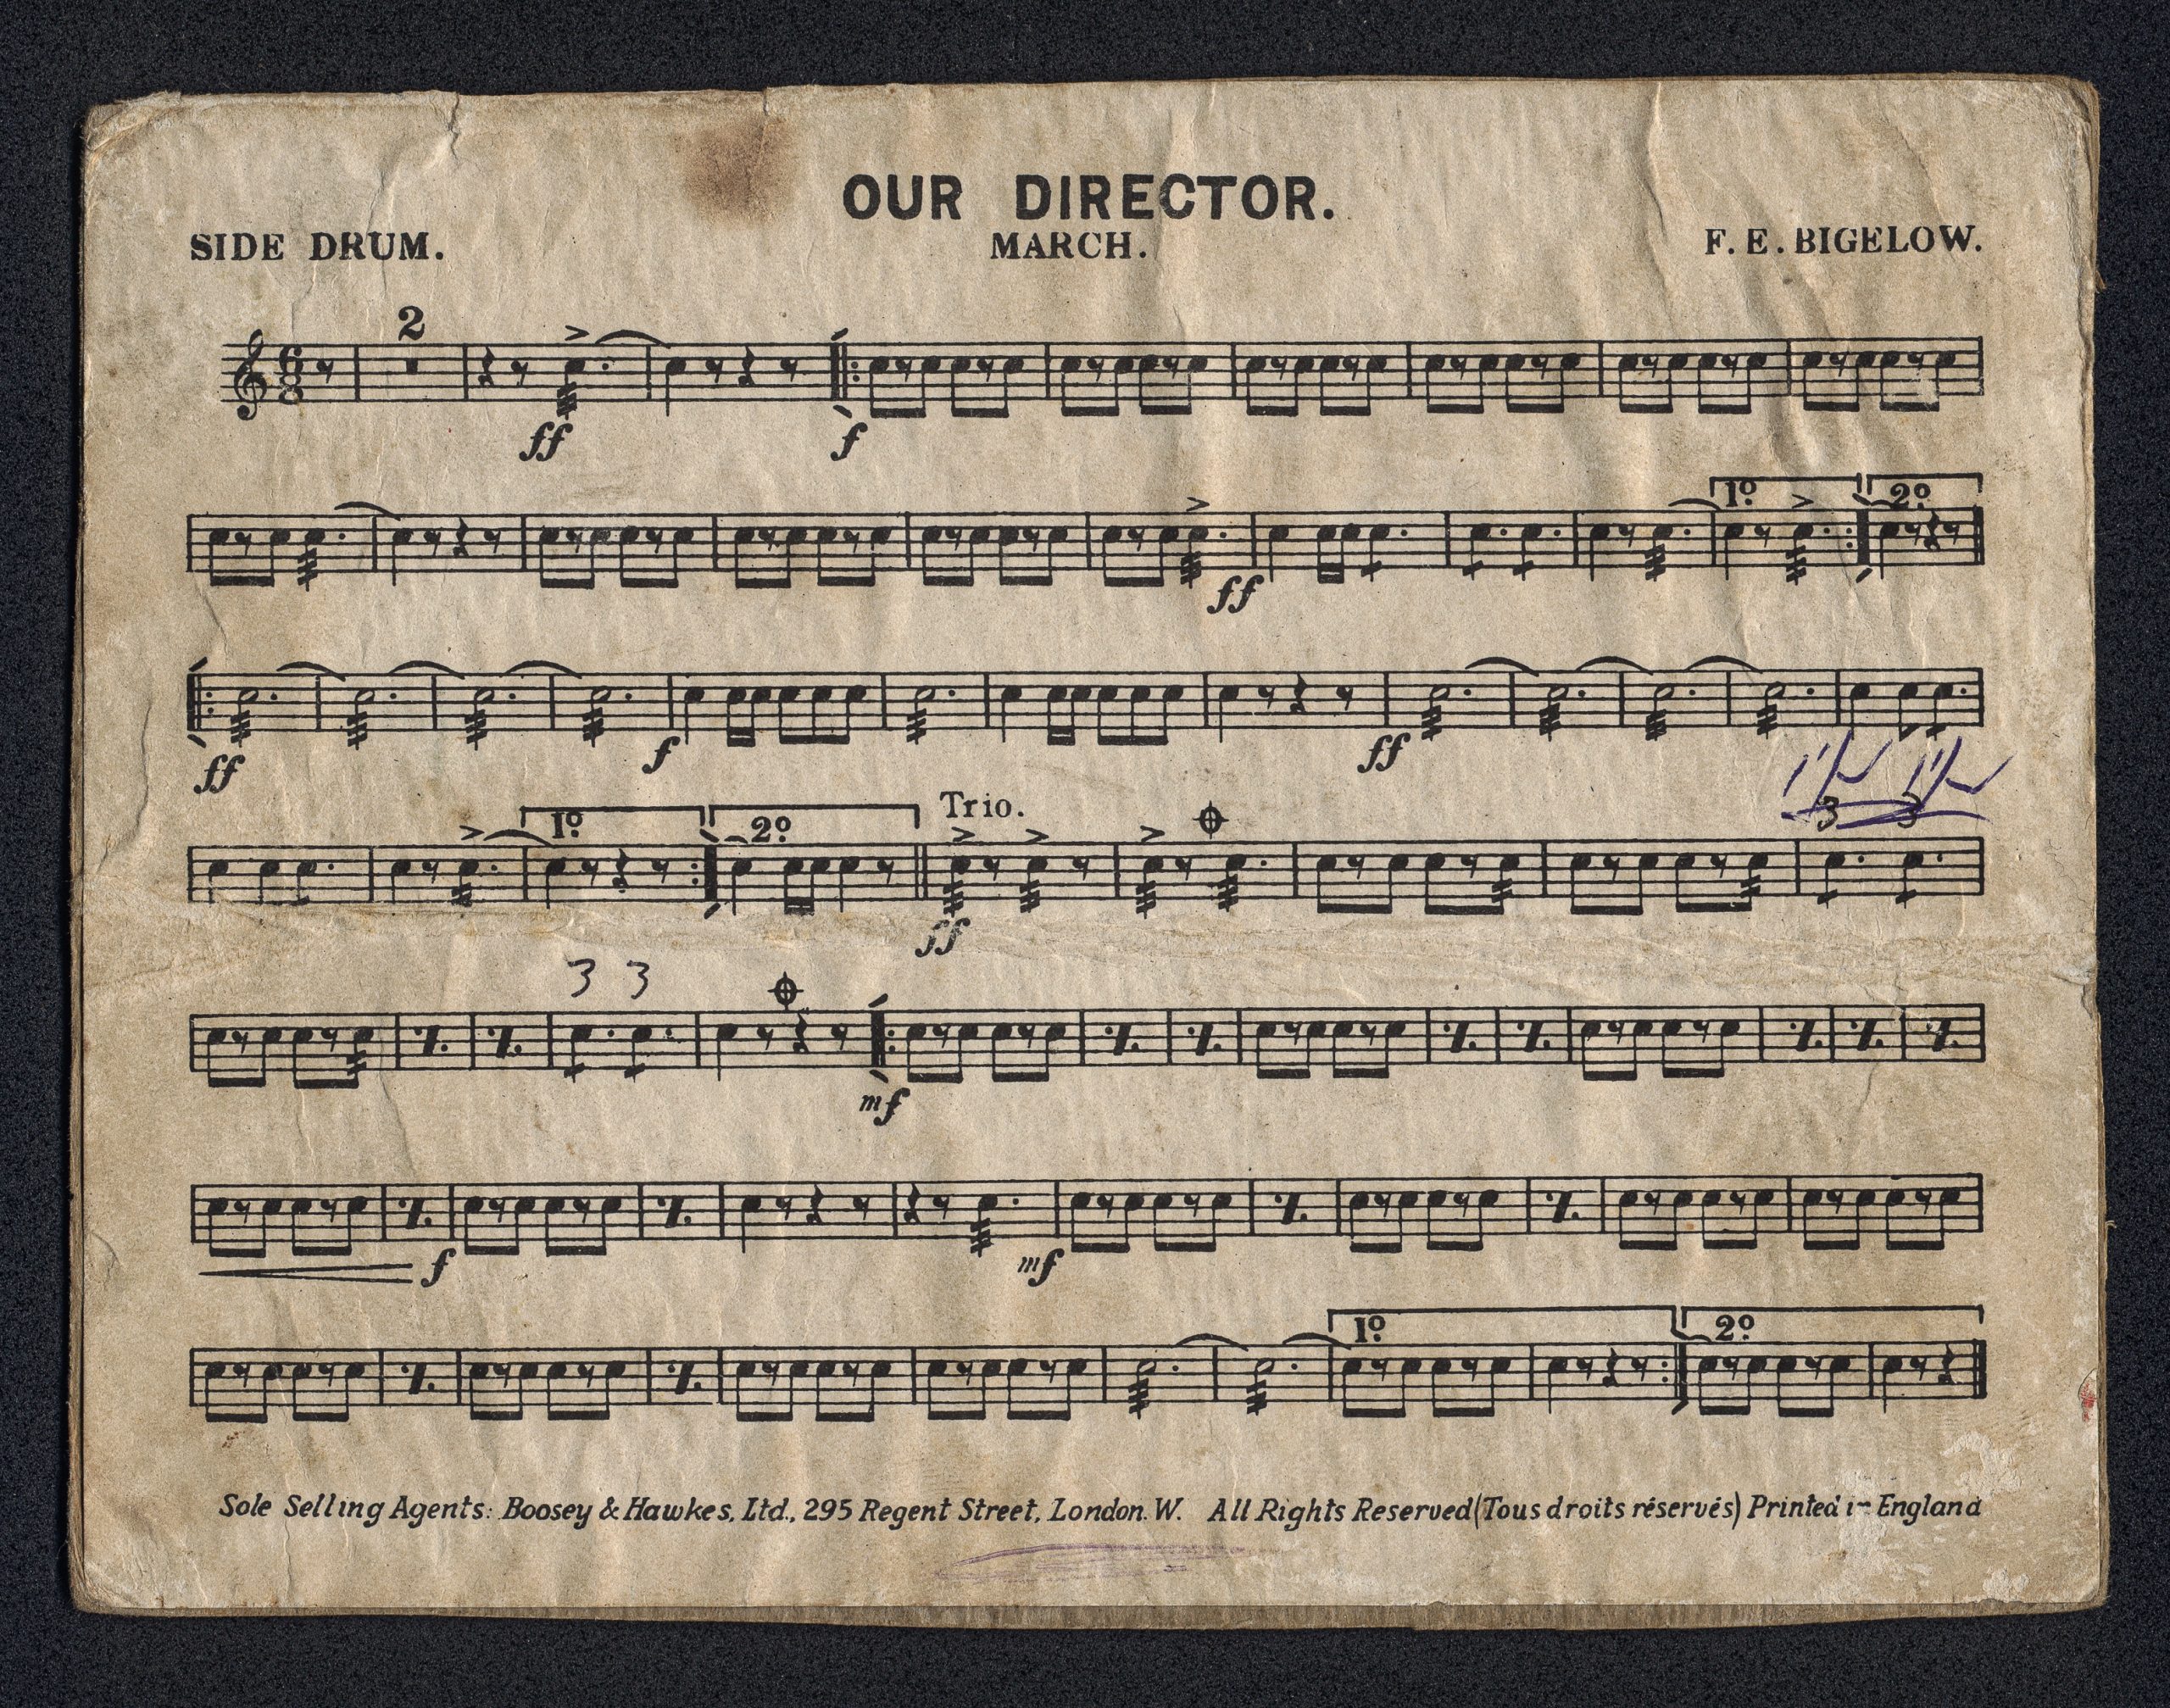 OUR DIRECTOR.
SIDE DRUM. MARCH. F. E. BIGELOW.
2
ff f
1º 2º
ff
ff f ff
1º 2º Trio. 3 3
ff
3 3
mf
f mf
1º 2º
Sole Selling Agents: Boosey & Hawkes, Ltd., 295 Regent Street, London. W. All Rights Reserved (Tous droits réservés) Printed in England